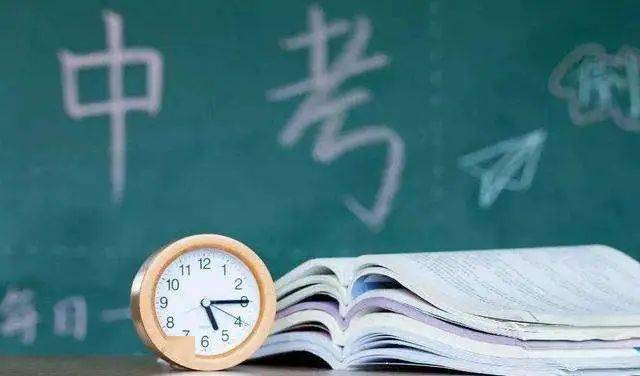 中考
每日一
12
11 1
10 2
9 3
8 4
6 5